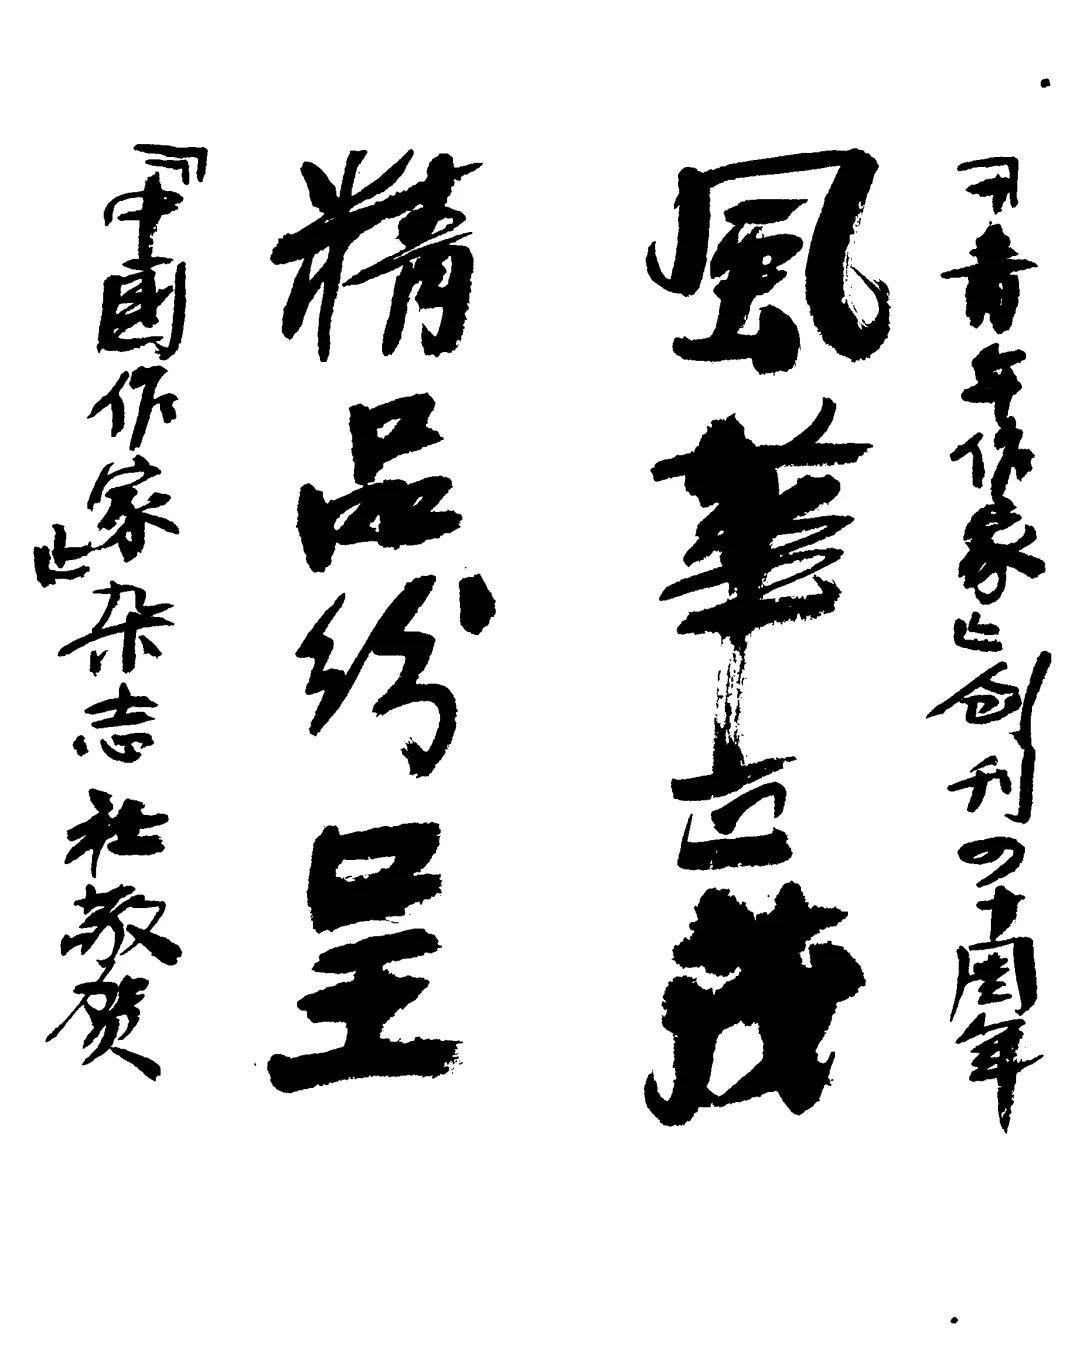 『青年作家』创刊四十周年
風華正茂
精品纷呈
『中國作家』杂志社敬贺